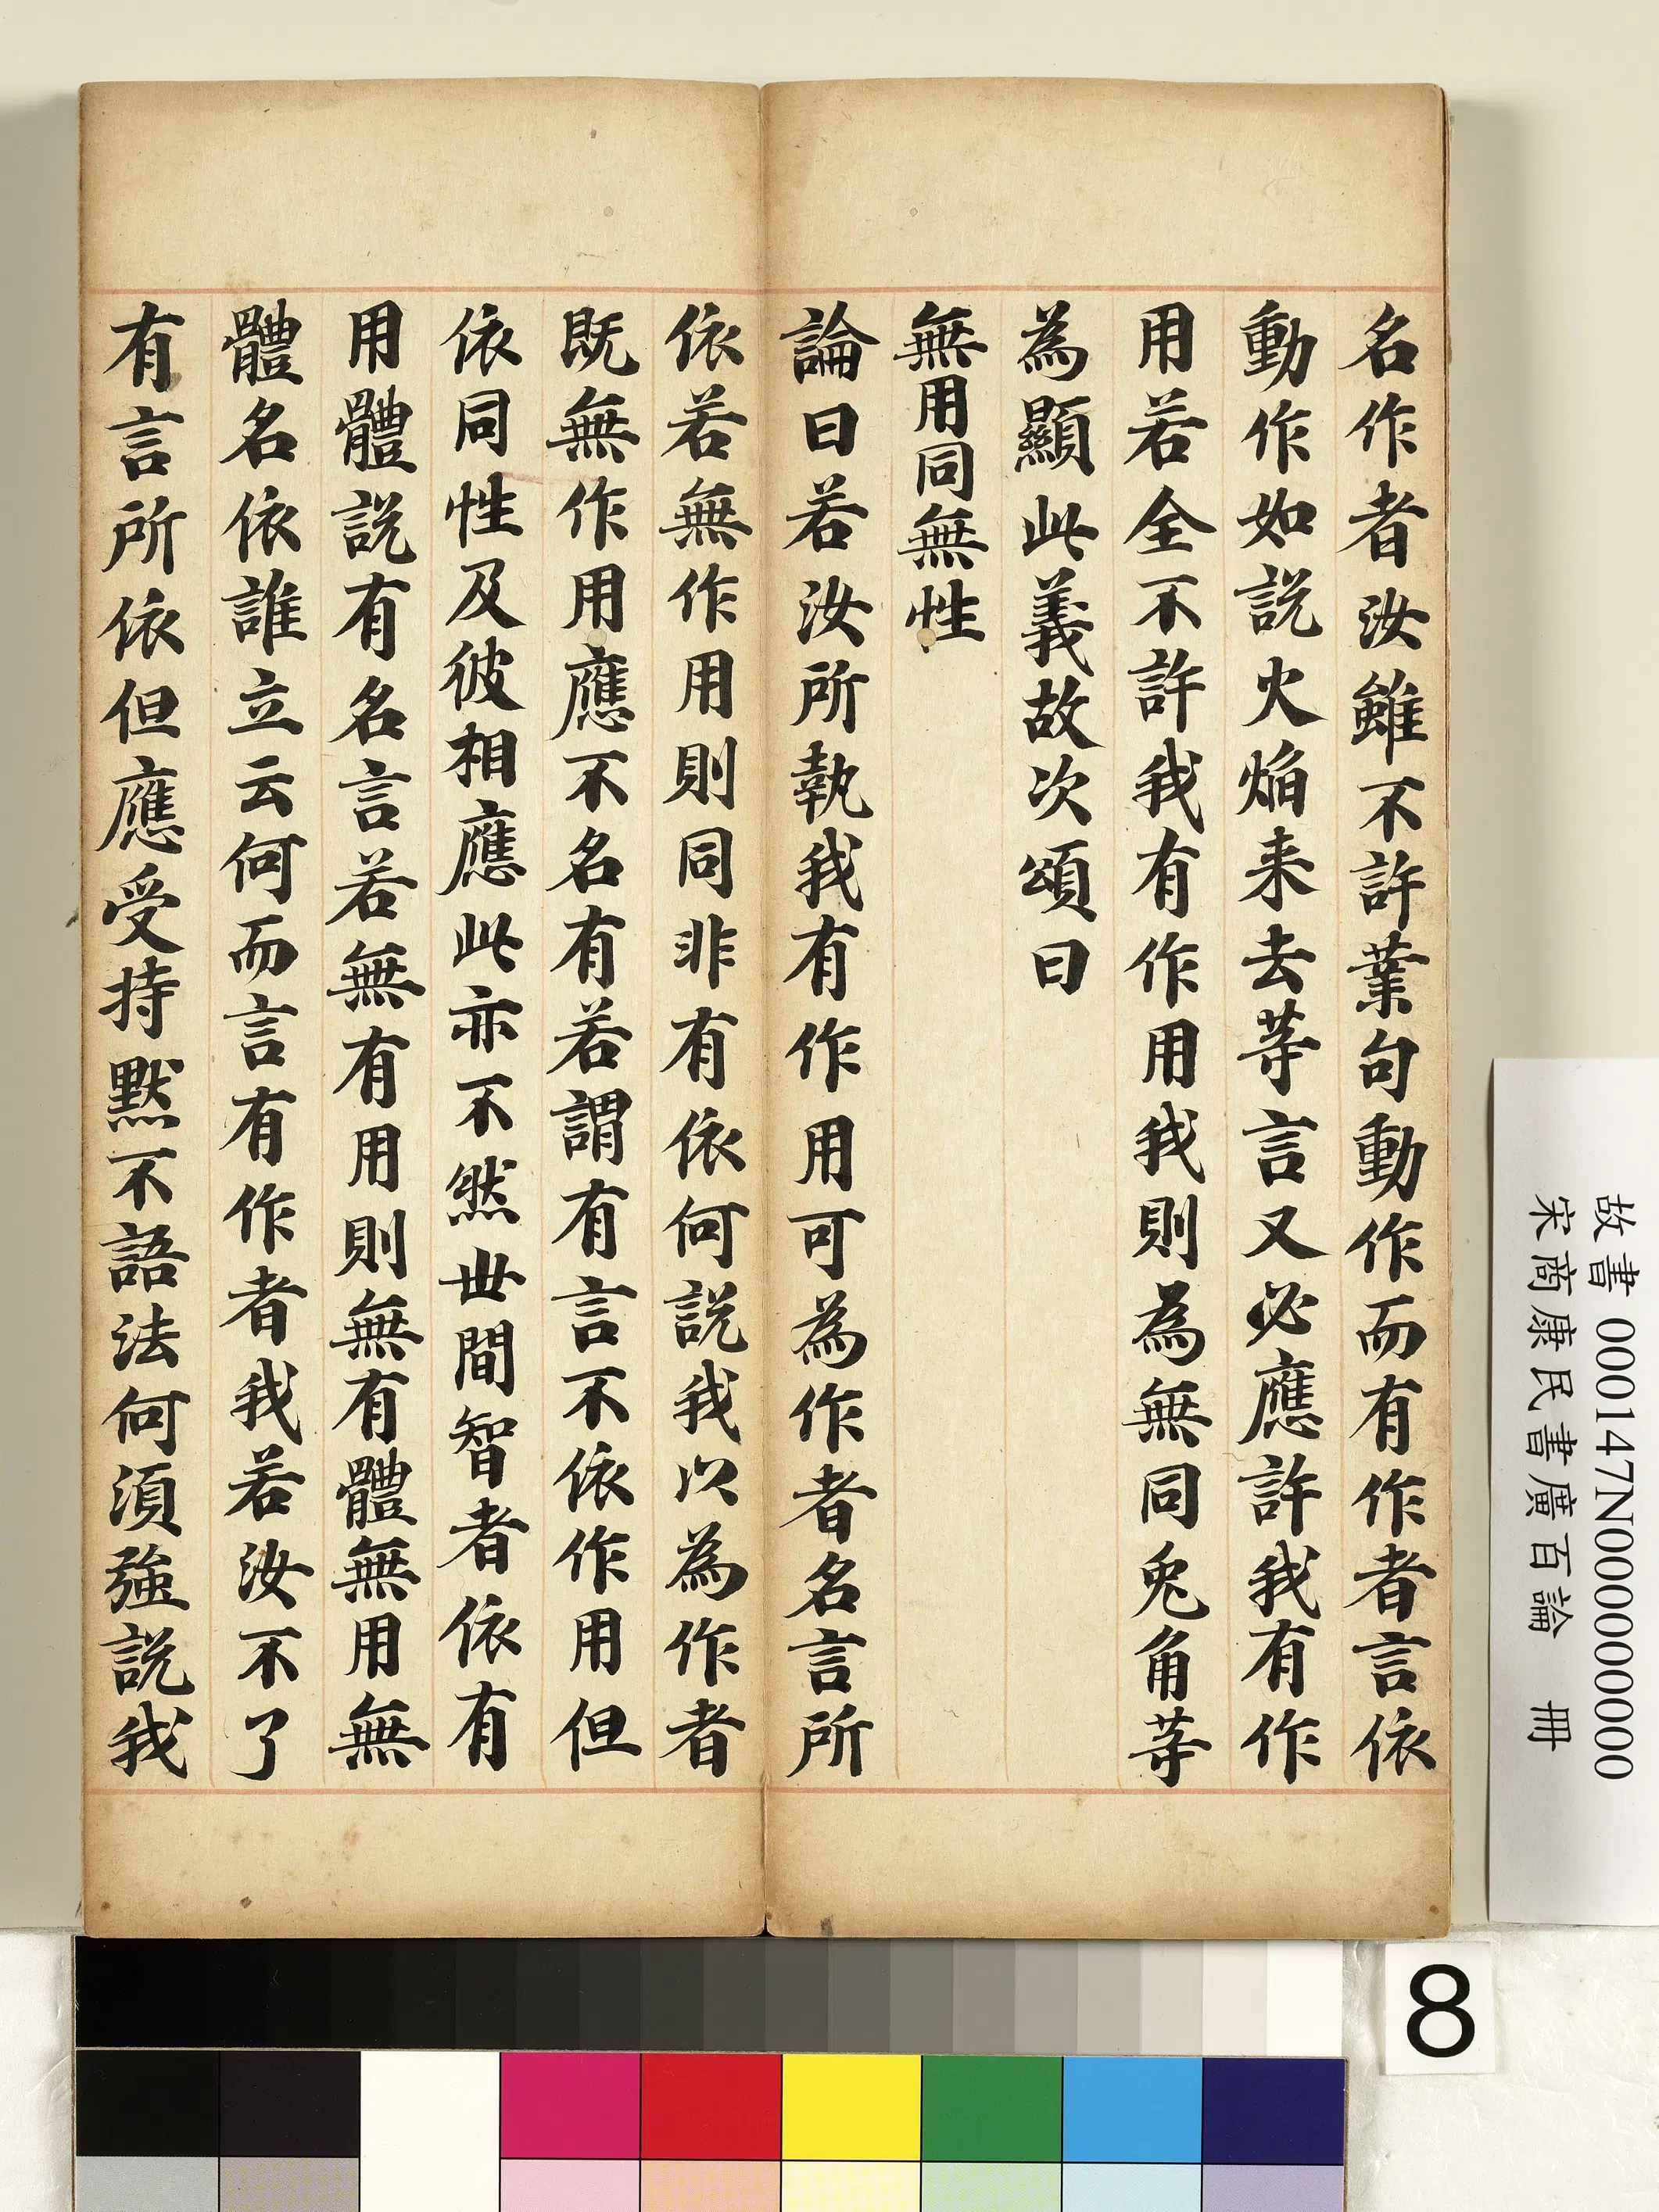 名作者汝雖不許業句動作而有作者言依
動作如說火焔来去等言又必應許我有作
用若全不許我有作用我則為無同兎角等
為顯此義故次頌曰
無用同無性
論曰若汝所執我有作用可為作者名言所
依若無作用則同非有依何說我以為作者
既無作用應不名有若謂有言不依作用但
依同性及彼相應此亦不然世間智者依有
用體說有名言若無有用則無有體無用無
體名依誰立云何而言有作者我若汝不了
有言所依但應受持默不語法何須強說我
故書 000147N000000000
宋商康民書廣百論 冊
8